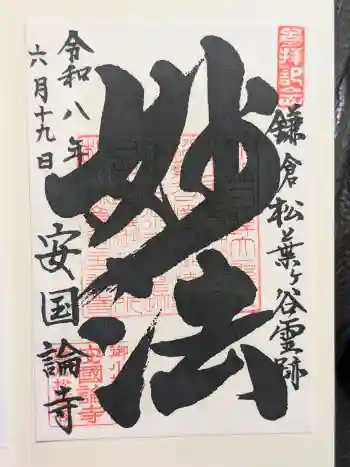 参拝記念
鎌倉松葉ヶ谷霊跡
妙法
令和八年
六月十九日
安国論寺